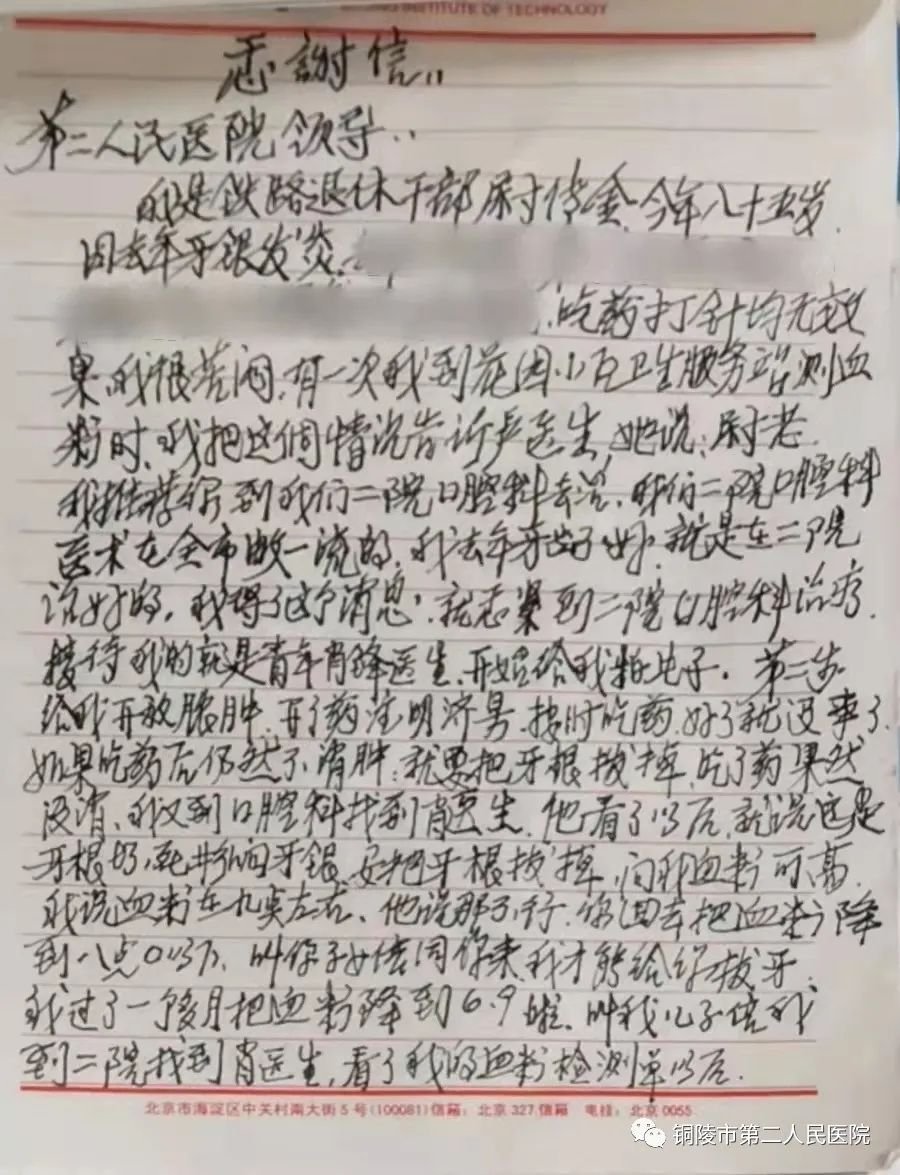 INSTITUTE OF TECHNOLOGY
感謝信
第二人民医院领导:
我是铁路退休干部尉传金.今年八十五岁.
因去年牙银发炎.
吃药打针均无效
果,我很苦闷,有一次我到花园小区卫生服务站测血
粉时、我把这个情况告诉严医生,她说:尉老
我推荐你到我们二院口腔科去治、我们二院口腔科
医术在全市数一流的,我去年牙齿 就是在二院
治好的,我得了这个消息,就志 到二院口腔科治疗.
接待我的就是青年肖锋医生,开始给我拍片子.第二步
给我开放脓肿,开了药注明济另,按时吃药,好了就没事了
如果吃药后仍然不消肿,就要把牙根拔掉,吃了药果然
没消、我又到口腔科找到肖医生,他看了以后,就说这是
牙根 牙银,要把牙根拔掉,问我血粉可高.
我说血粉在九点左右、他说那不行,你回去把血粉降
到八点0以下、叫你子女陪同你来,我才能给你拔牙.
我过了一个多月把血粉降到6.9啦、叫我儿子陪我
到二院找到肖医生,看了我的血粉检测单以后.
北京市海淀区中关村南大街5号(100081)信箱:北京327信箱 电挂:北京0055
铜陵市第二人民医院